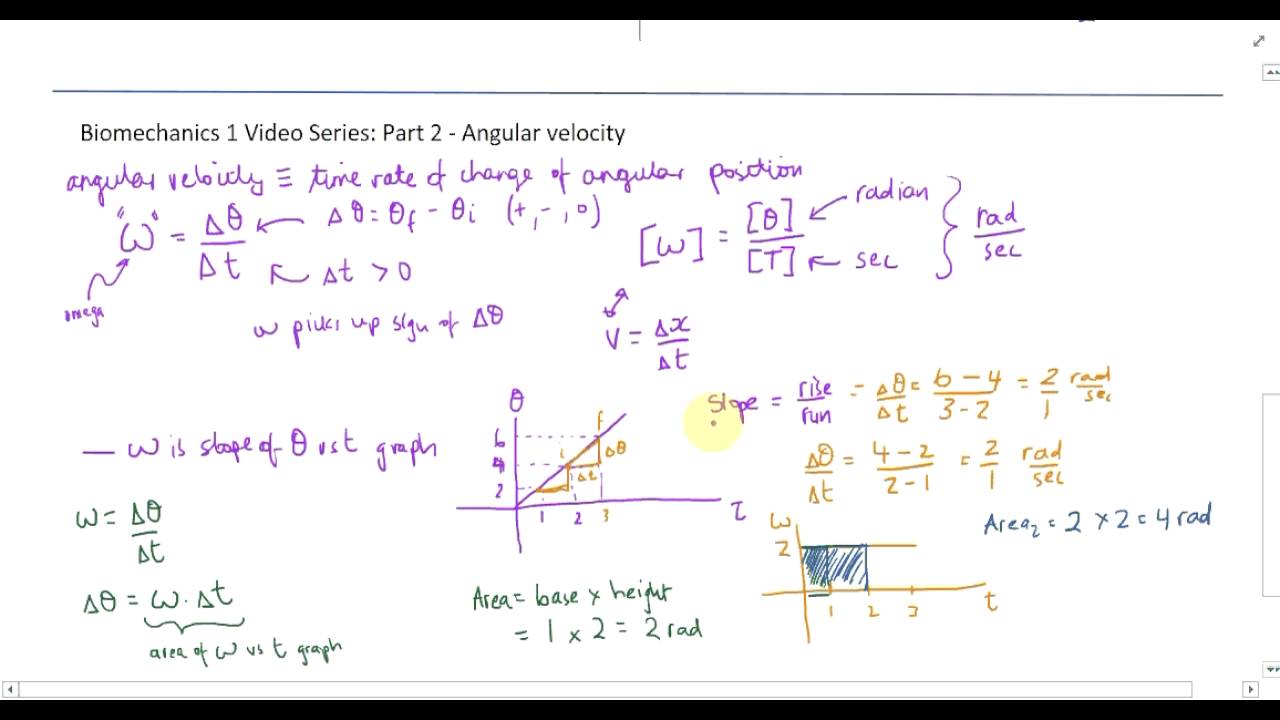 Biomechanics 1 Video Series: Part 2 - Angular velocity
angular velocity ≡ time rate of change of angular position
"ω" = Δθ/Δt
Δθ = θf - θi (+, -, 0)
Δt > 0
omega
ω picks up sign of Δθ
[ω] = [θ]/[T]
radian
sec
rad/sec
V = Δx/Δt
— ω is slope of θ vs t graph
θ
6
4
2
i
f
Δθ
Δt
1 2 3
t
Slope = rise/run = Δθ/Δt = 6-4/3-2 = 2/1 rad/sec
Δθ/Δt = 4-2/2-1 = 2/1 rad/sec
ω = Δθ/Δt
Δθ = ω·Δt
area of ω vs t graph
Area = base × height
= 1 × 2 = 2 rad
ω
2
1 2 3
t
Area₂ = 2 × 2 = 4 rad